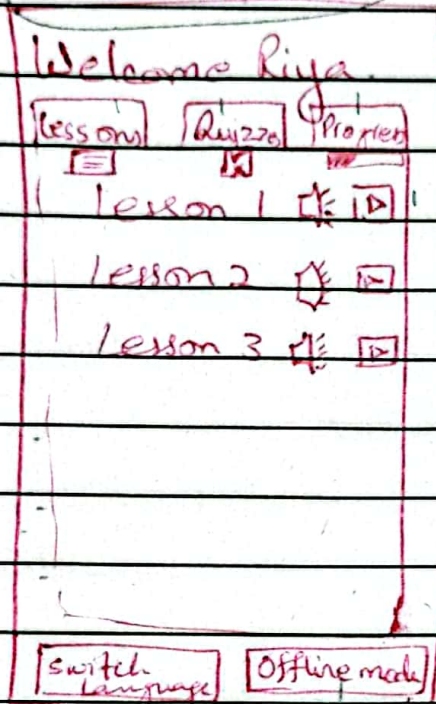 Welcome Riya
Lessons Quizzo Progress
Lesson 1
Lesson 2
Lesson 3
Switch Language Offline mode